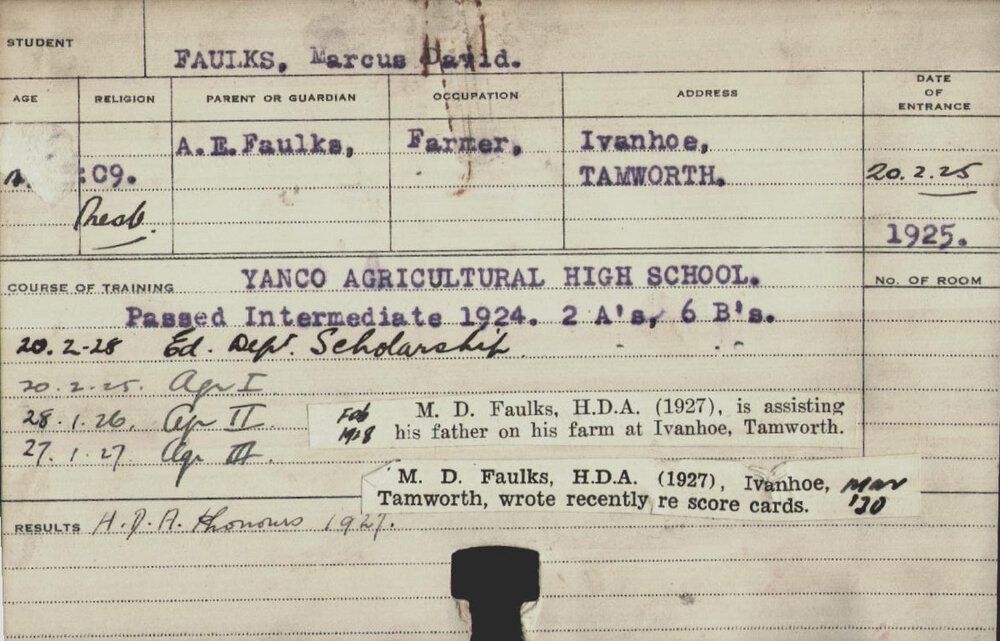 STUDENT
FAULKS, Marcus David.
AGE RELIGION PARENT OR GUARDIAN OCCUPATION ADDRESS DATE OF ENTRANCE
A.E.Faulks, Farmer, Ivanhoe,
:09. TAMWORTH. 20.2.25
Presb.
1925.
COURSE OF TRAINING YANCO AGRICULTURAL HIGH SCHOOL. NO. OF ROOM
Passed Intermediate 1924. 2 A's, 6 B's.
20.2-25 Ed. Dept. Scholarship
20.2.25. Agr I
28.1.26. Agr II.
27.1.27 Agr III.
Feb 1928
M. D. Faulks, H.D.A. (1927), is assisting
his father on his farm at Ivanhoe, Tamworth.
M. D. Faulks, H.D.A. (1927), Ivanhoe,
Tamworth, wrote recently re score cards.
Mar '30
RESULTS H.D.A. Honours 1927.